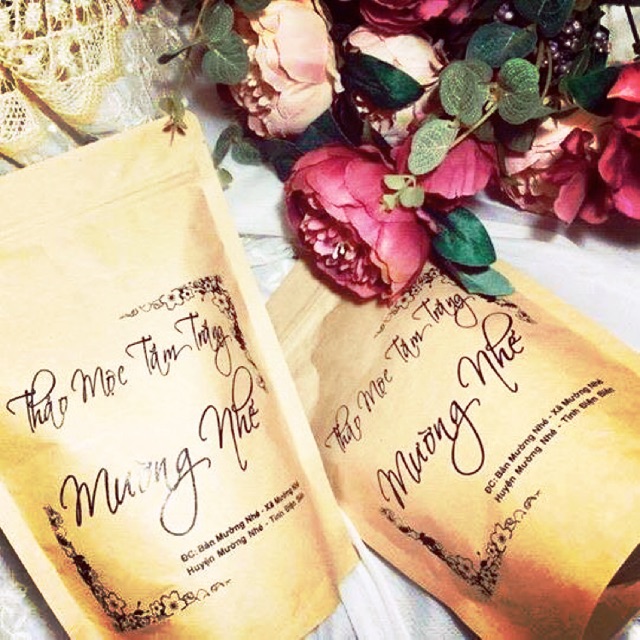 Thảo Mộc Tắm Trắng
Mường Nhé
ĐC: Bản Mường Nhé - Xã Mường Nhé
Huyện Mường Nhé - Tỉnh Điện Biên
Thảo Mộc Tắm Trắng
Mường Nhé
ĐC: Bản Mường Nhé - Xã Mường Nhé
Huyện Mường Nhé - Tỉnh Điện Biên